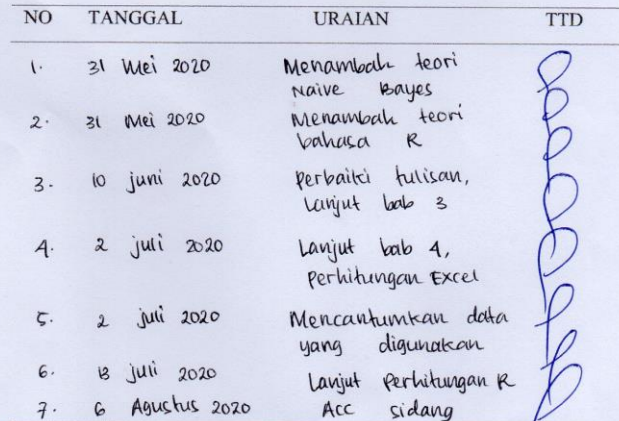 NO TANGGAL URAIAN TTD
1. 31 Mei 2020 Menambah teori
Naive Bayes
2. 31 Mei 2020 Menambah teori
bahasa R
3. 10 juni 2020 Perbaiki tulisan,
Lanjut bab 3
4. 2 juli 2020 Lanjut bab 4,
Perhitungan Excel
5. 2 juli 2020 Mencantumkan data
yang digunakan
6. 13 juli 2020 Lanjut Perhitungan R
7. 6 Agustus 2020 Acc sidang